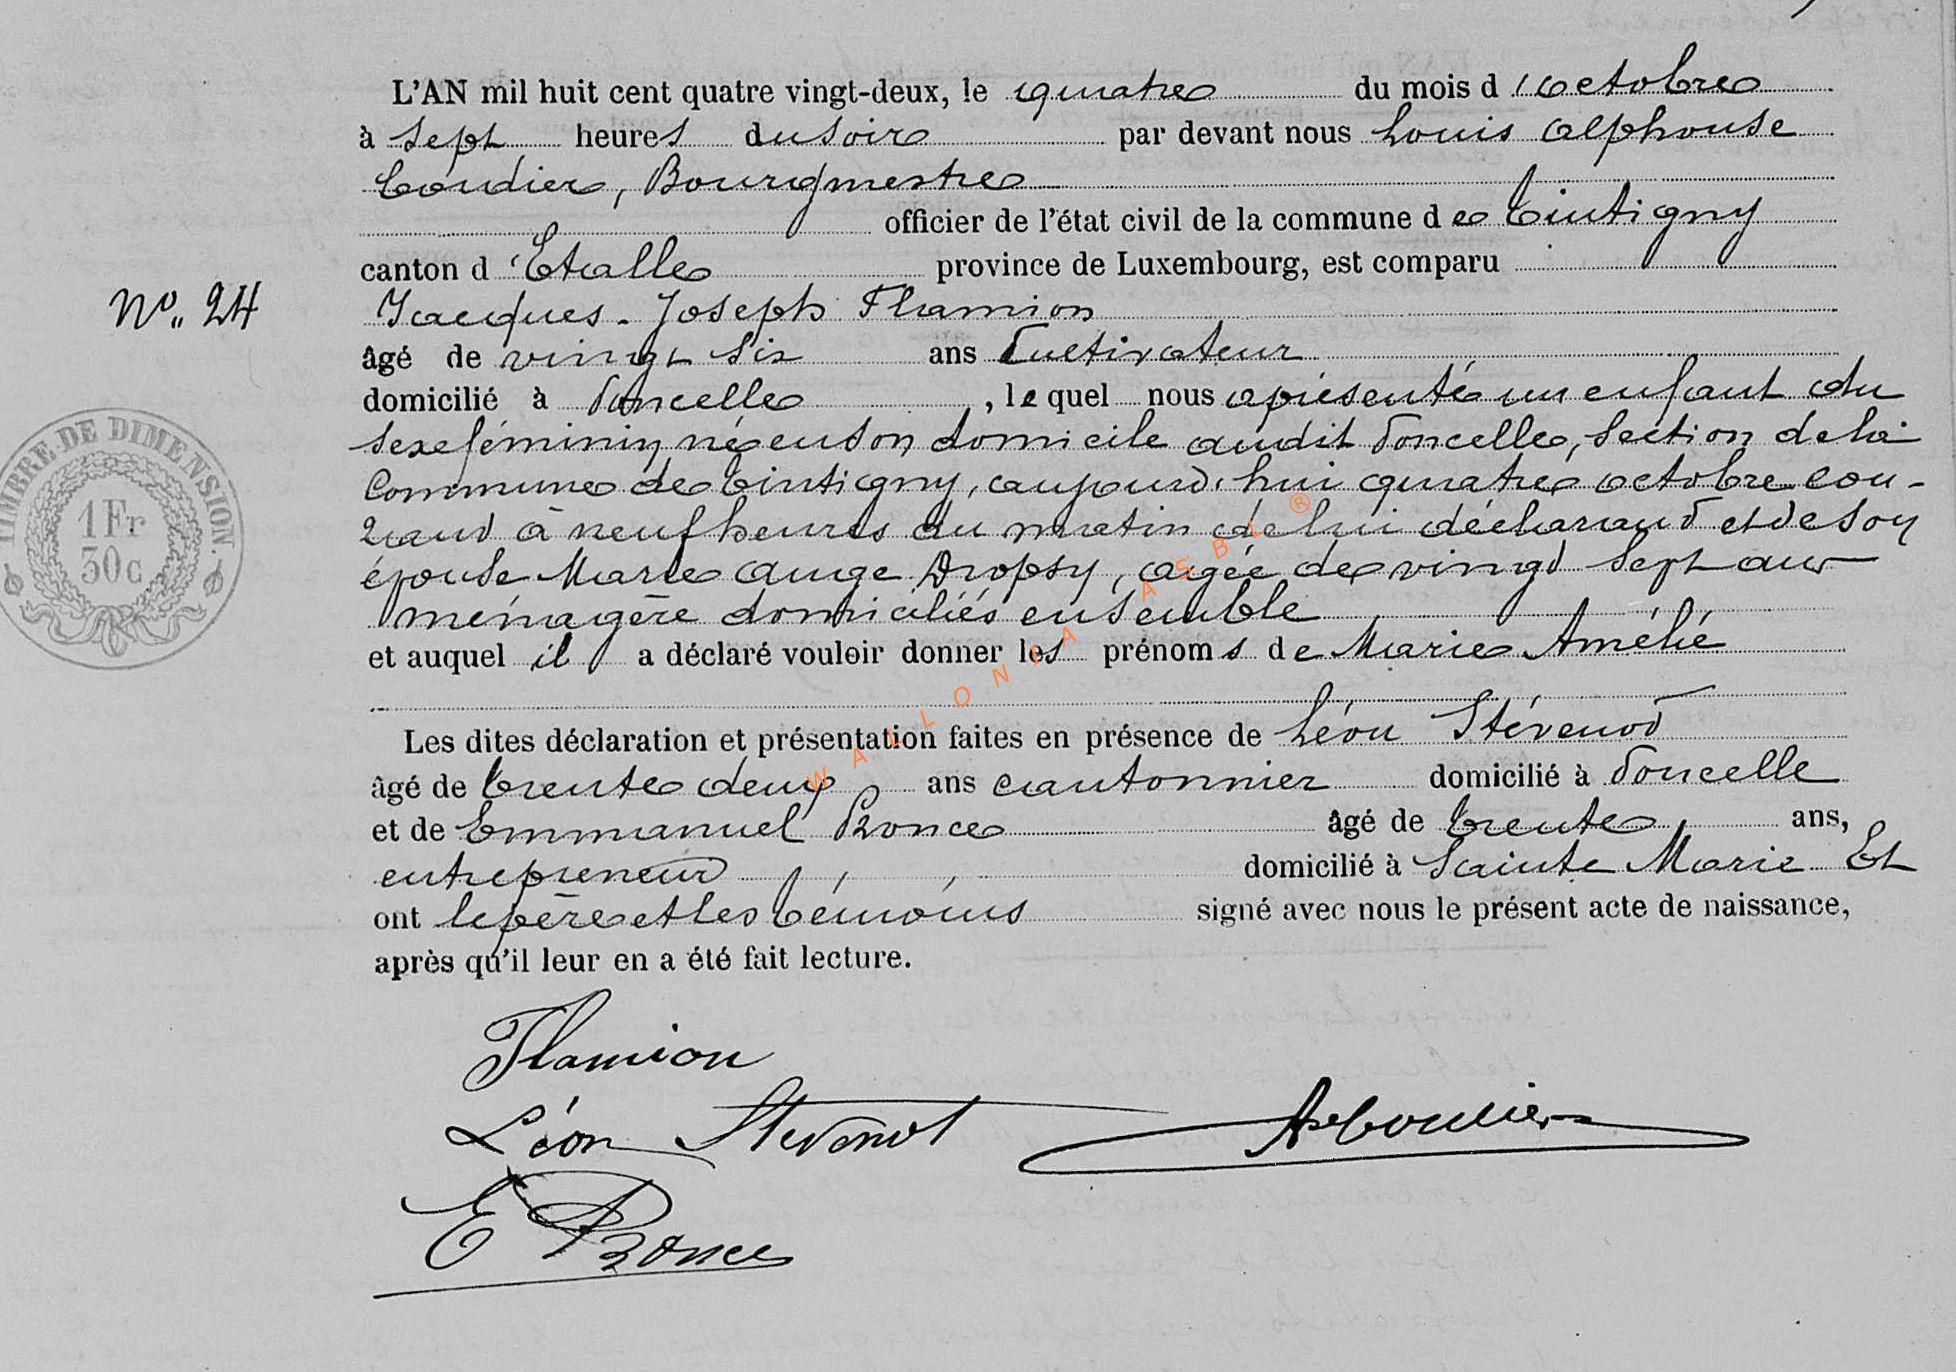 L'AN mil huit cent quatre vingt-deux, le quatre du mois d'octobre
à sept heures du soir par devant nous Louis Alphonse
Coudier, Bourgmestre
officier de l'état civil de la commune de Tintigny
canton d'Etalle province de Luxembourg, est comparu
N° 24
Jacques-Joseph Flamion
âgé de vingt six ans Cultivateur
domicilié à Poncelle, lequel nous a présenté un enfant du
sexe féminin né en son domicile audit Poncelle, section de la
Commune de Tintigny, aujourd'hui quatre octobre cou-
rant à neuf heures du matin de lui déclarant et de son
épouse Marie Ange Dropsy, agée de vingt sept ans
ménagère domiciliés ensemble
et auquel il a déclaré vouloir donner les prénoms de Marie Amélie
Les dites déclaration et présentation faites en présence de Léon Stévenot
âgé de trente deux ans cantonnier domicilié à Poncelle
et de Emmanuel Ronce âgé de trente ans,
entrepreneur domicilié à Sainte Marie Et
ont le père et les témoins signé avec nous le présent acte de naissance,
après qu'il leur en a été fait lecture.
TIMBRE DE DIMENSION.
1 Fr
30 c
WALLONIA ASBL ®
Flamion
Léon Stevenot
E Ronce